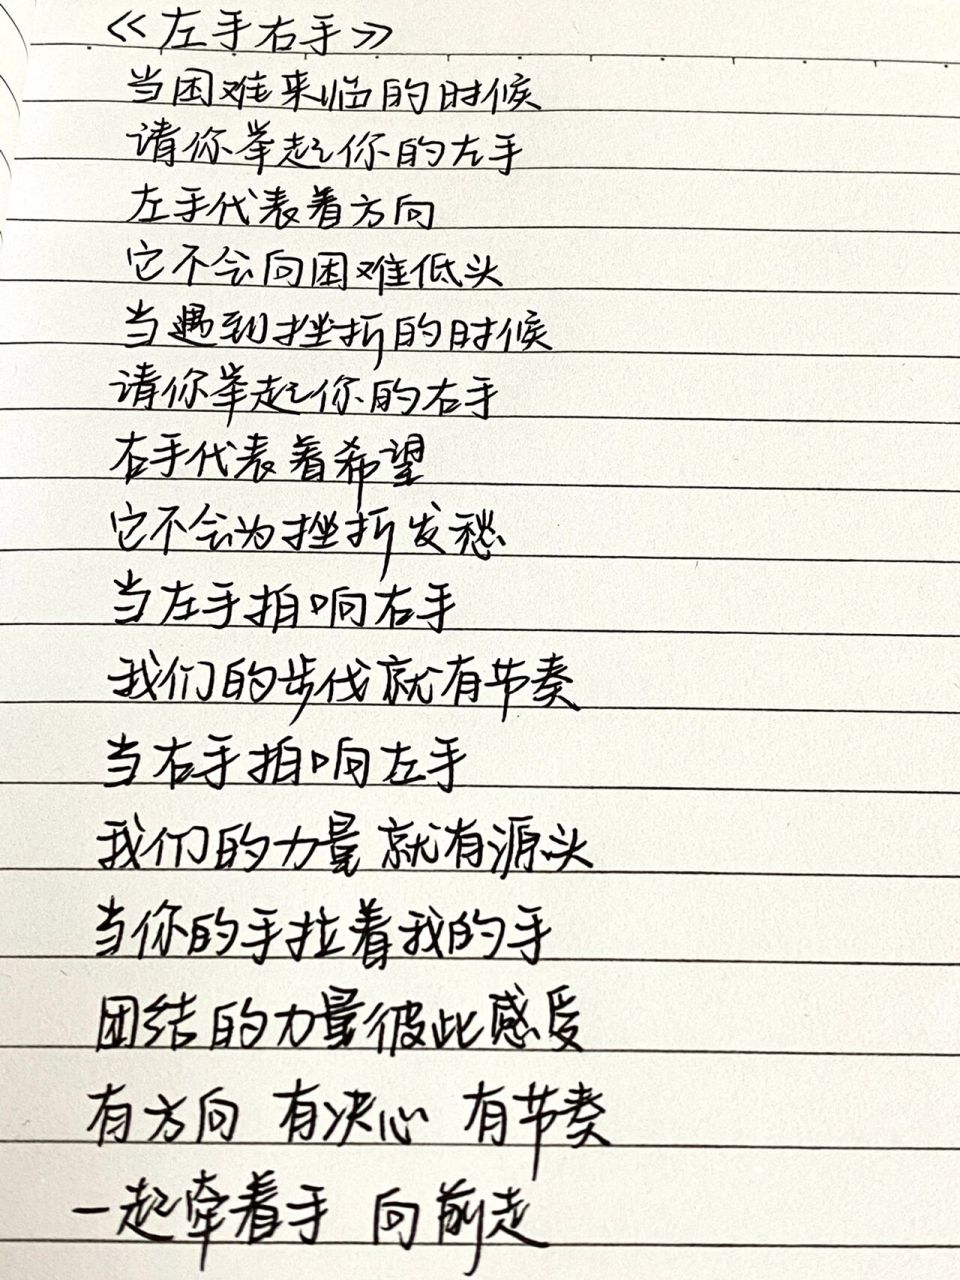 《左手右手》
当困难来临的时候
请你举起你的左手
左手代表着方向
它不会向困难低头
当遇到挫折的时候
请你举起你的右手
右手代表着希望
它不会为挫折发愁
当左手拍响右手
我们的步伐就有节奏
当右手拍响左手
我们的力量就有源头
当你的手拉着我的手
团结的力量彼此感受
有方向 有决心 有节奏
一起牵着手 向前走